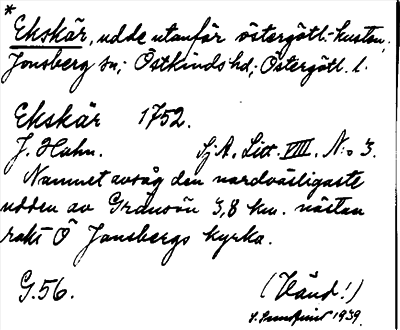 *
Ekskär, udde utanför östergötl.-kusten,
Jonsberg sn; Östkinds hd; Östergötl. l.
Ekskär 1752.
J. Hahn. Sj. A. Litt. VIII. N:o 3.
Namnet avsåg den nordväsligaste
udden av Gränsön 3,8 km. nästan
rakt Ö Jonsbergs kyrka.
G. 56. (Vänd!)
1939.